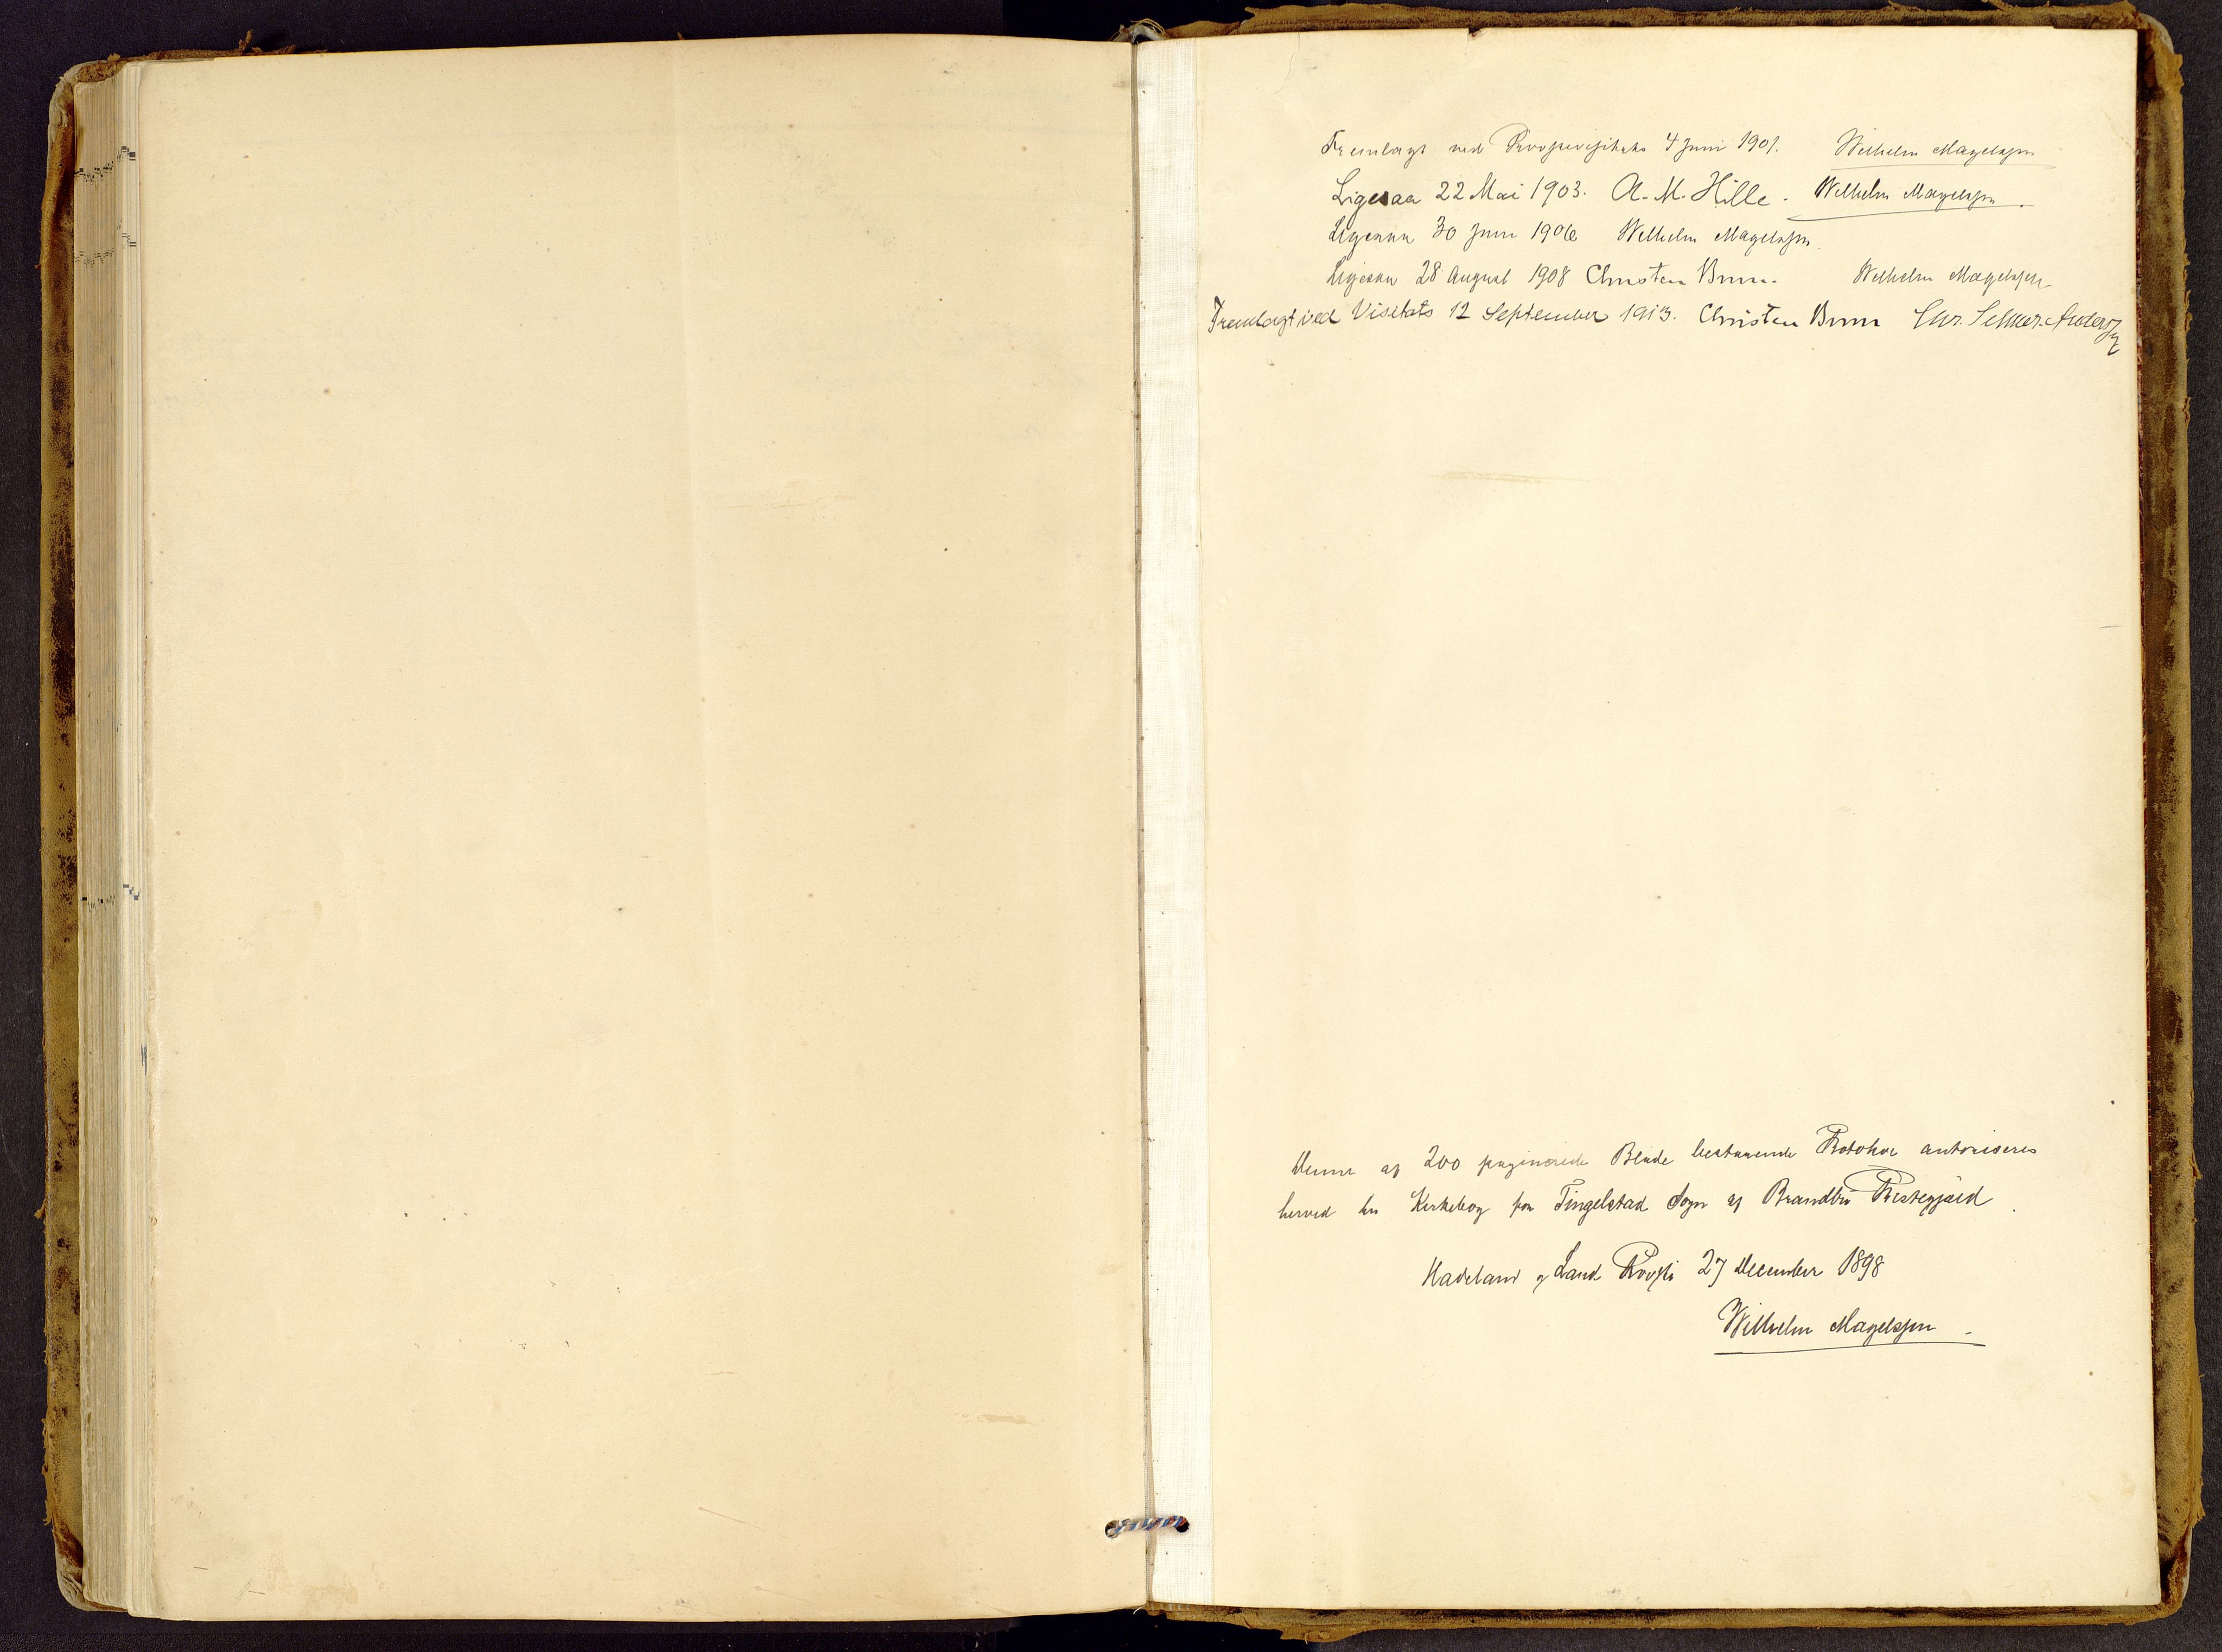 Fremlagt ved Provstevisitats 4 Juni 1901. Wilhelm Magelssen
Ligesaa 22 Mai 1903. A. M. Hille. Wilhelm Magelssen.
Ligesaa 30 Juni 1906 Wilhelm Magelssen
Ligesaa 28 August 1908 Christen Brun. Wilhelm Magelssen
Fremlagt ved Visitats 12 September 1913. Christen Brun Chr. Selmer-Anderssen
Denne af 200 paginerede Blade bestaaende Protokol autoriseres
herved som Kirkebog for Tingelstad Sogn af Brandbu Præstegjæld.
Hadeland og Land Provsti 27 December 1898
Wilhelm Magelssen.